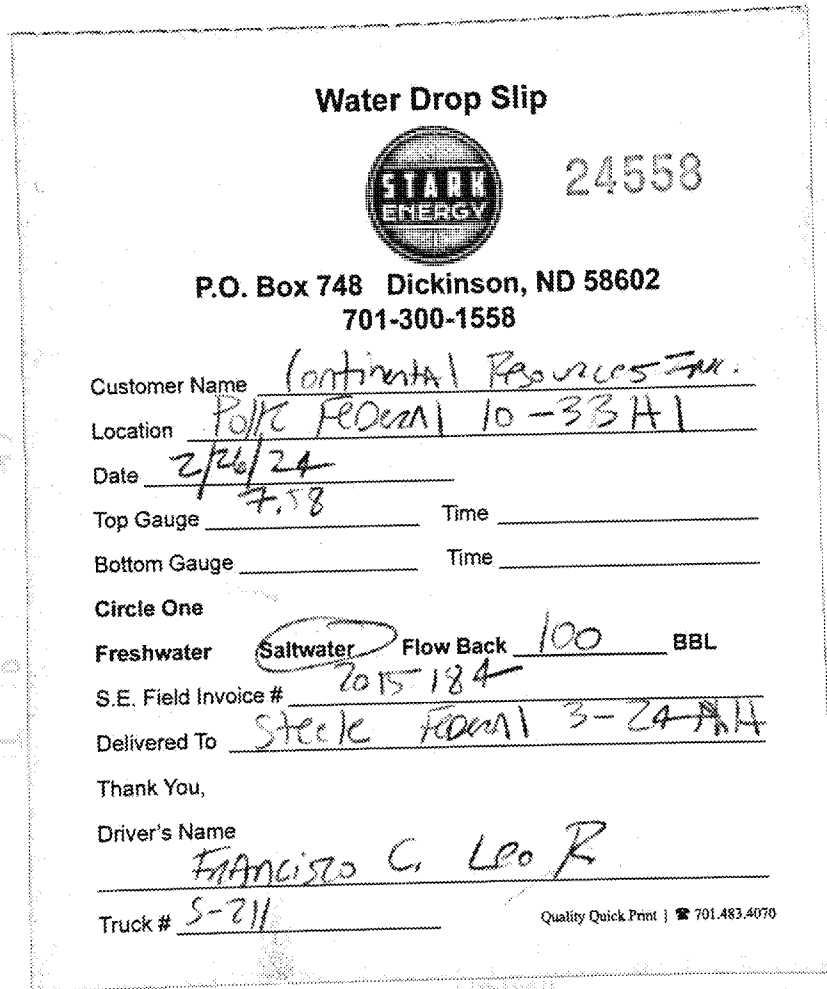 Water Drop Slip
STARK
ENERGY
24558
P.O. Box 748 Dickinson, ND 58602
701-300-1558
Customer Name Continental Resources Inc.
Location Polk Federal 10-33H1
Date 2/26/24
Top Gauge 7.58 Time
Bottom Gauge Time
Circle One
Freshwater Saltwater Flow Back 100 BBL
S.E. Field Invoice # 2015184
Delivered To Steele Federal 3-24
Thank You,
Driver's Name
Francisco C. Leo R
Truck # S-211
Quality Quick Print | ☎ 701.483.4070